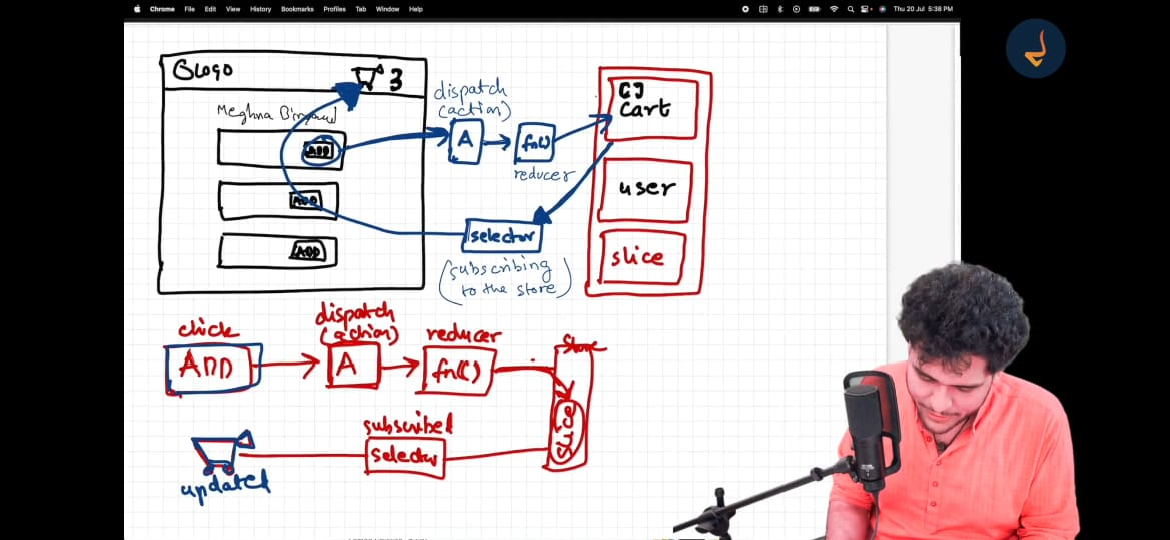 Chrome File Edit View History Bookmarks Profiles Tab Window Help
Thu 20 Jul 5:38 PM
3
Meghna
ADD
ADD
ADD
dispatch
(action)
A
fn()
reducer
selector
(subscribing
to the store)
cart
user
slice
click
ADD
dispatch
(action)
A
reducer
fn()
Store
slice
subscribed
selector
updated